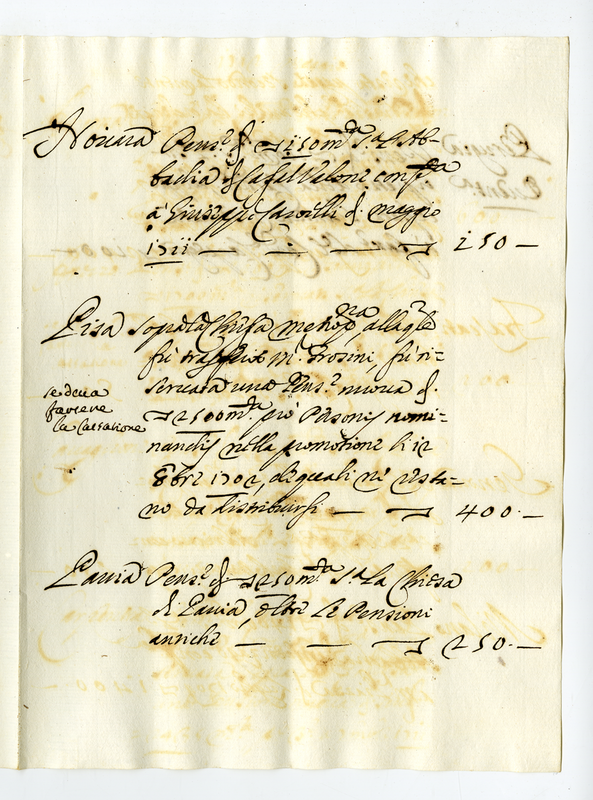 Novara Pens.e di 150 m.ta S.a l'Ab-
badia di Casal Valone
à Giuseppe di maggio
1711 — 150 —
Pisa sop.a la Chiesa alla q.le
fù Mr. Frosini, fù ri-
servata una Pens.e nuova di
2500 m.ta prò Personis nomi-
nandis nella promotione li 12
8bre 1702, de quali ne resta-
no da distribuirsi — 400 —
se deva
farsene
la Cassatione
Pavia Pens.e di 250 m.ta S.a la Chiesa
di Pavia, oltre le Pensioni
antiche — — 250 —